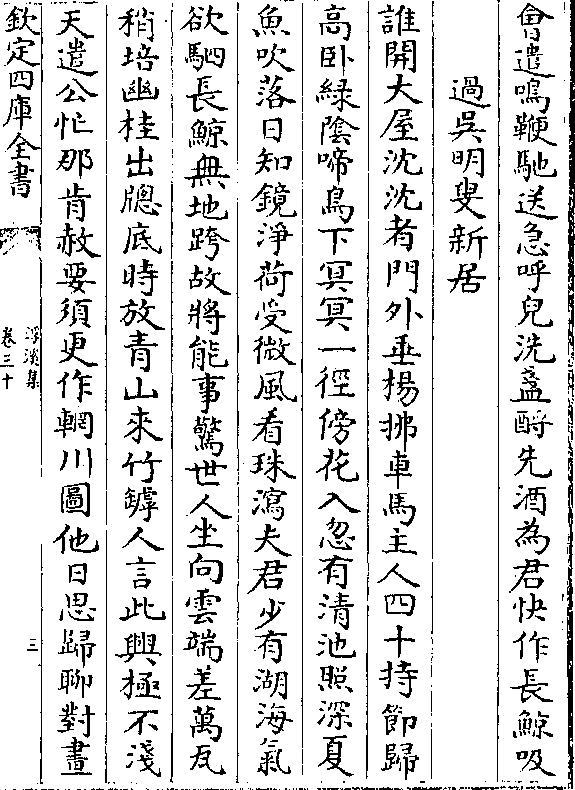 會遣鳴鞭馳送急呼兒洗盞酹先酒為君快作長鯨吸
過吳明叟新居
誰開大屋沈沈者門外垂楊拂車馬主人四十持節歸
高卧緑陰啼鳥下冥冥一徑傍花入忽有清池照深夏
魚吹落日知鏡淨荷受微風看珠瀉夫君少有湖海氣
欲駟長鯨無地跨故將能事驚世人坐向雲端差萬瓦
稍培幽桂出牕底時放青山來竹罅人言此興極不淺
天遣公忙那肯赦要須更作輞川圖他日思歸聊對畫
欽定四庫全書
浮溪集
卷三十
三